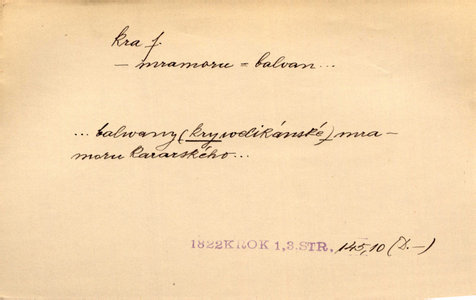 kra f.
– mramoru = balvan...
... balwany (kry welikánské) mra–
moru kararského...
1822 KROK 1,3. STR. 145,10 (D.–)